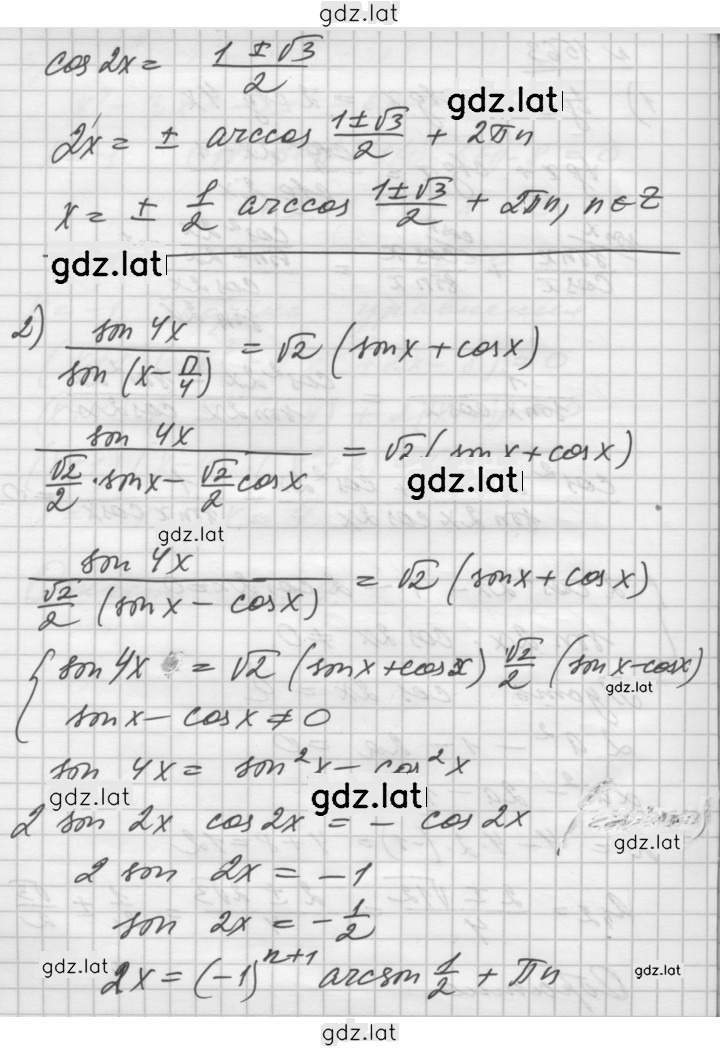 gdz.lat
cos 2x = (1 ± √3)/2
gdz.lat
2x = ± arccos (1 ± √3)/2 + 2πn
x = ± 1/2 arccos (1 ± √3)/2 + 2πn, n ∈ Z
gdz.lat
2) sin 4x / sin (x − π/4) = √2 (sin x + cos x)
sin 4x / (√2/2 · sin x − √2/2 cos x) = √2 (sin x + cos x)
gdz.lat
gdz.lat
sin 4x / (√2/2 (sin x − cos x)) = √2 (sin x + cos x)
{ sin 4x = √2 (sin x + cos x) √2/2 (sin x − cos x)
gdz.lat
sin x − cos x ≠ 0
sin 4x = sin² x − cos² x
gdz.lat
gdz.lat
2 sin 2x cos 2x = − cos 2x
gdz.lat
2 sin 2x = −1
sin 2x = −1/2
gdz.lat
2x = (−1)ⁿ⁺¹ arcsin 1/2 + πn
gdz.lat
gdz.lat